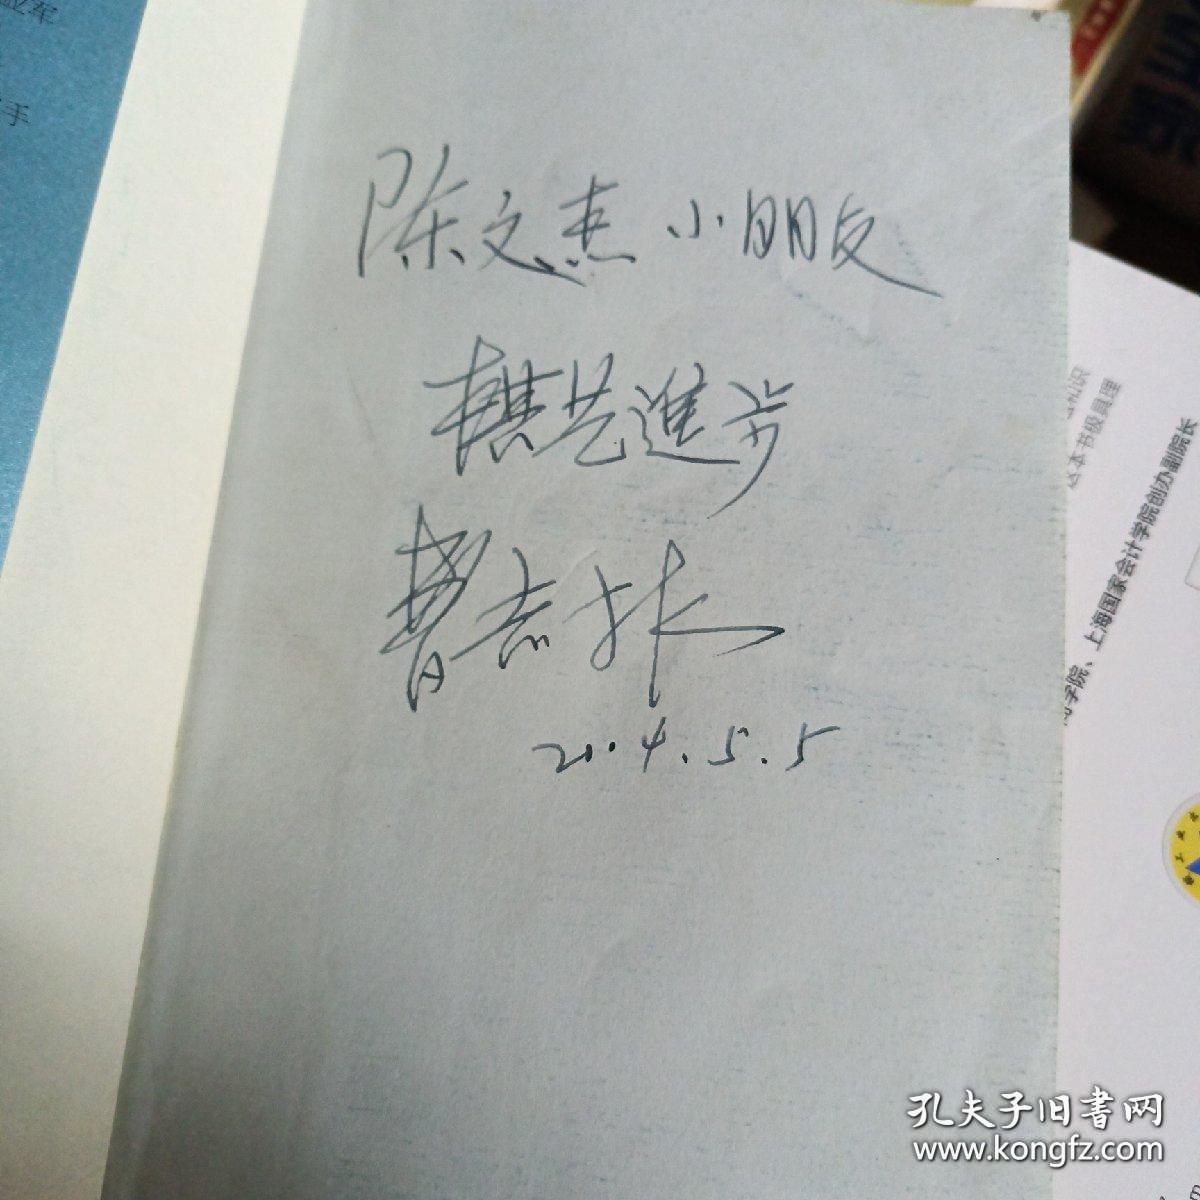 陈文杰小朋友
棋艺進步
曹志林
2004.5.5
手
识
这本书极具理
学院、上海国家会计学院创办副院长
孔夫子旧書网
www.kongfz.com